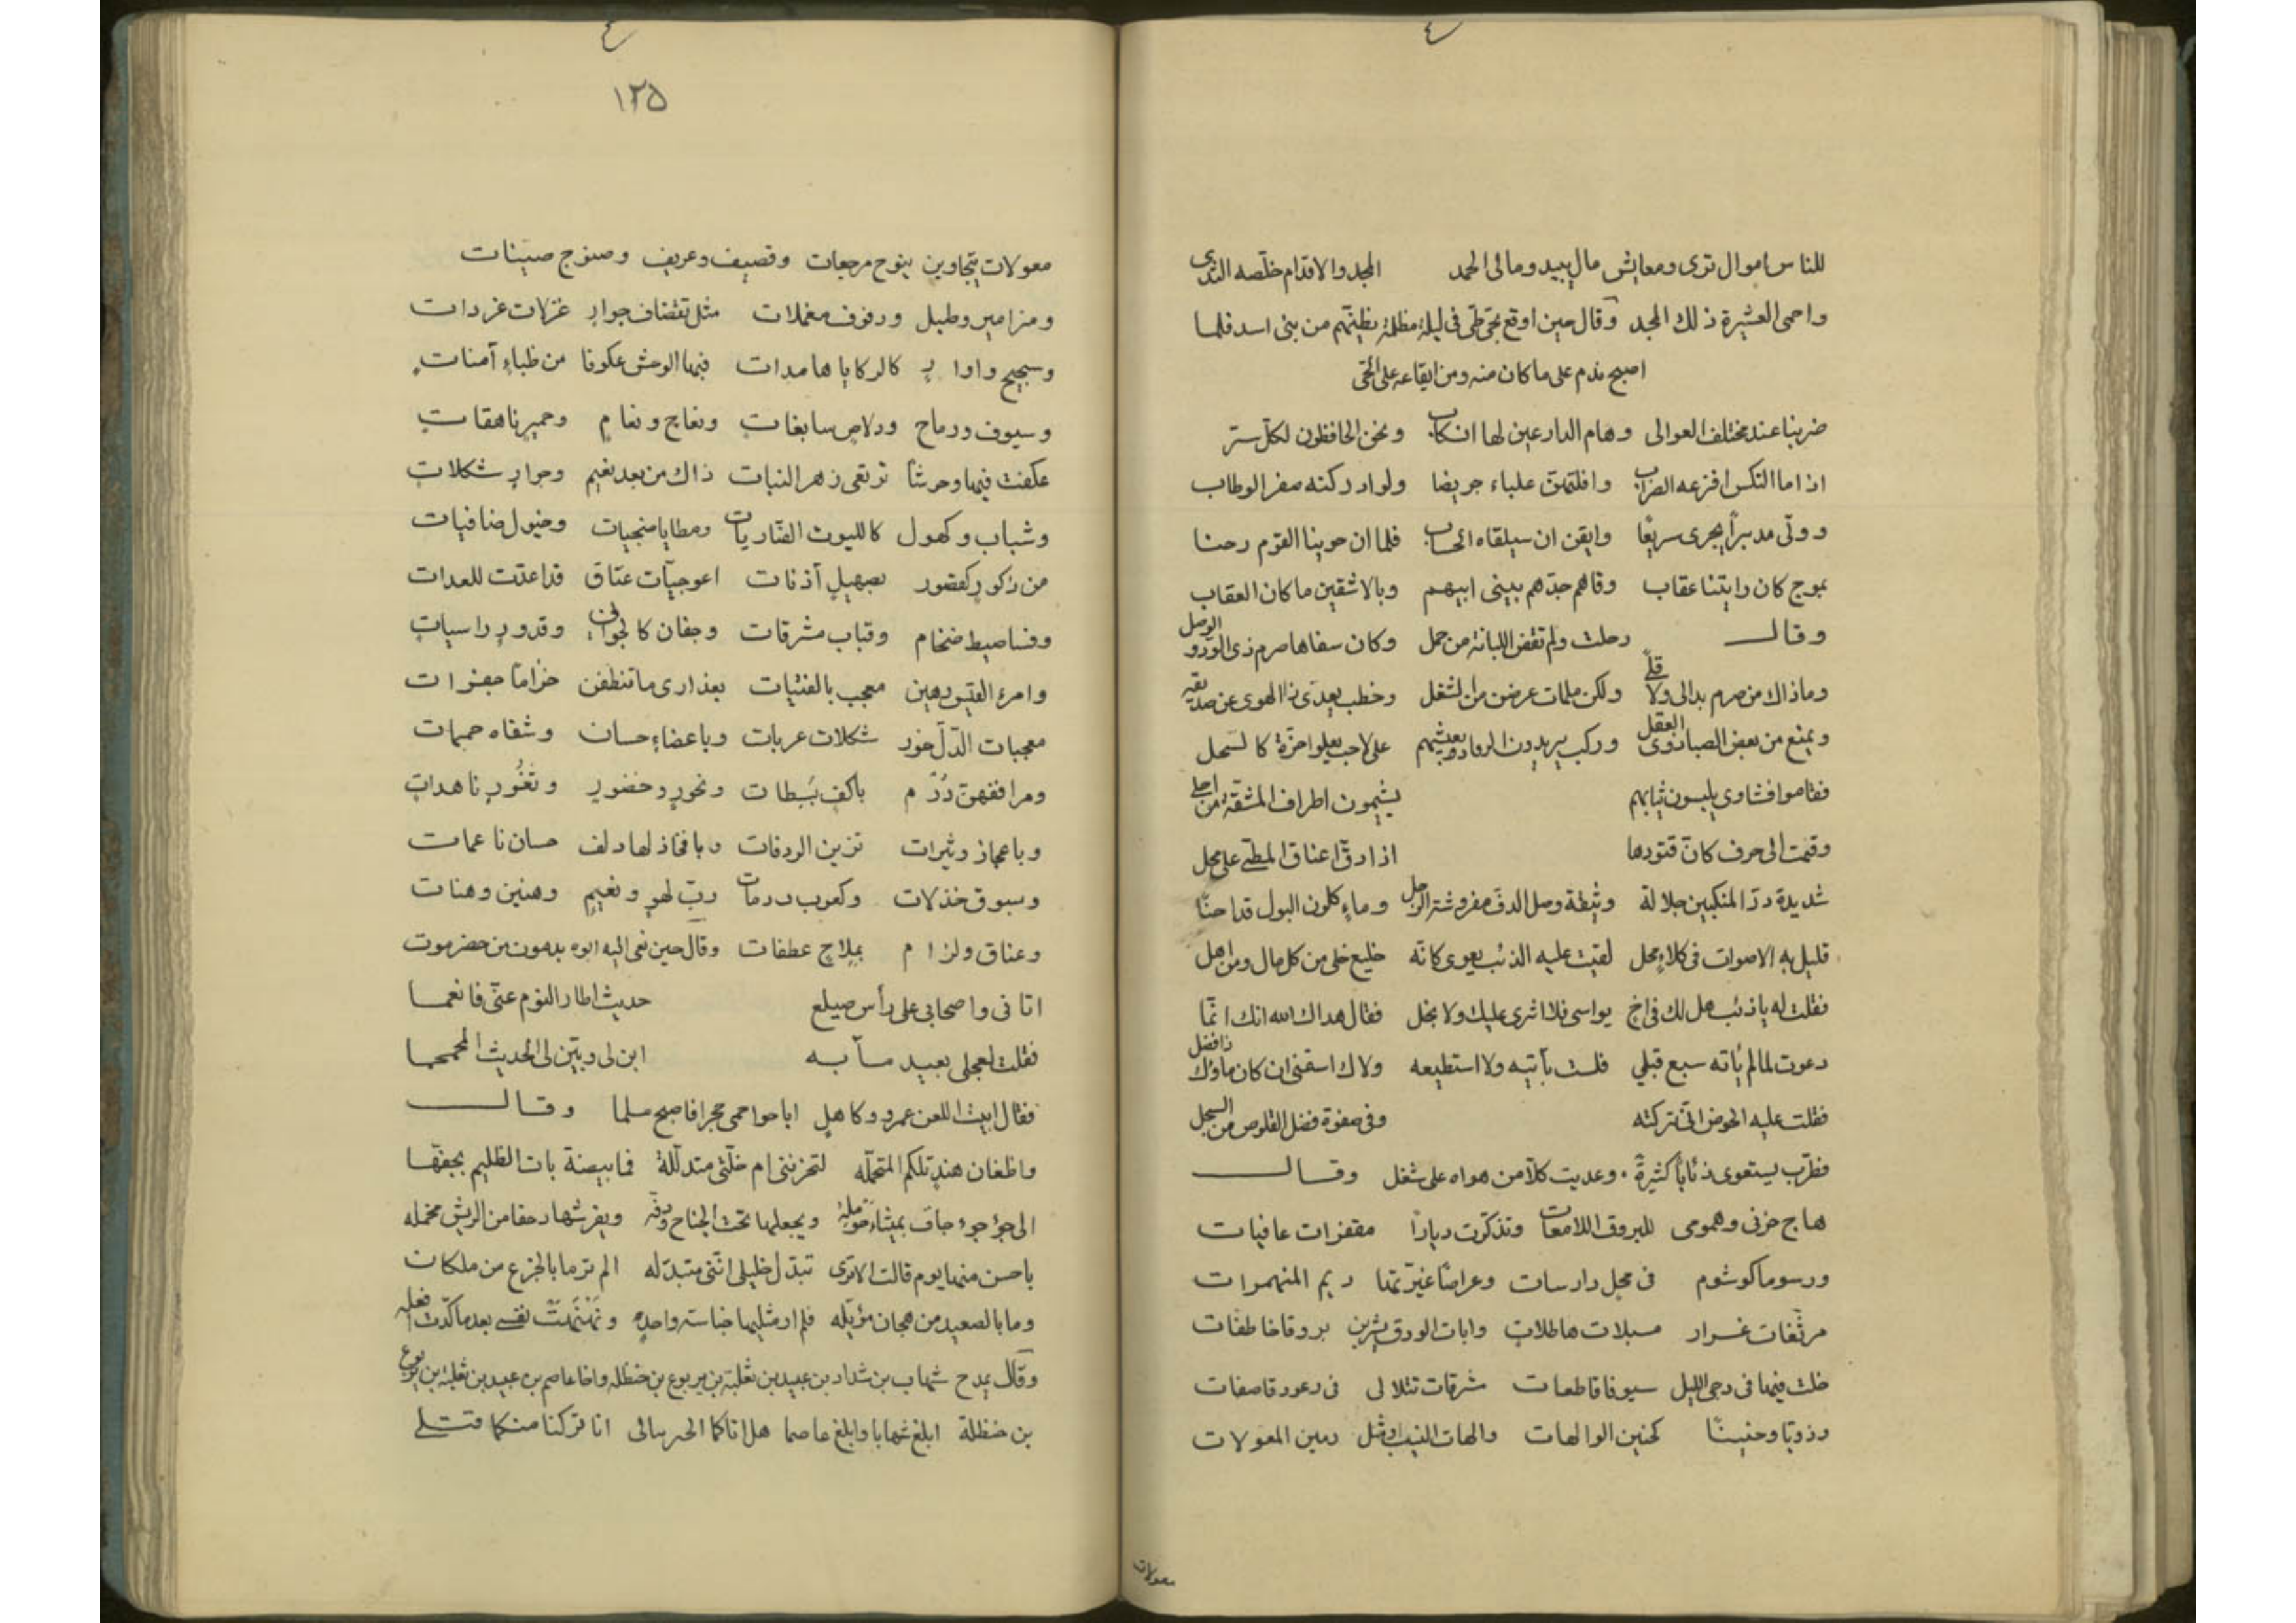 للناس اموال ترى ومعايش مال يبيد ومالى الحمد المجد والاقدام خلصه الندى
واحمى العشيرة ذلك المجد وقال حين اوقع بحى طى فى ليلة مظلمة يظنهم من بنى اسد فلما
اصبح ندم على ما كان منه ومن ايقاعه على الحى
ضربنا عند مختلف العوالى وهام الدارعين لها انكاب ونحن الحافظون لكل ستر
اذا ما النكس افزعه الضراب وافلتهن علباء جريضا ولو ادركنه صفر الوطاب
وولى مدبراً يجرى سريعًا وايقن ان سيلقاه الحساب فلما ان حوينا القوم رحنا
بموج كان رايتنا عقاب وقاهم جدهم ببنى ابيهم وبالاشقين ما كان العقاب
وقال رحلت ولم تقض اللبانة من جمل وكان سفاها صرم ذى الود والوصل
وماذاك من صرم بدالى ولا قلًى ولكن ملمات عرضن من الشغل وخطب يعدى ذا الهوى عن صديقه
ويمنع من بعض الصبا ذوى العقل وركب يريدون الرقاد بعثتهم على لاحب يعلو احزة كالسحل
فقاموا نشاوى يلبسون ثيابهم يشيمون اطراف المشقة من اجلى
وقمت الى حرف كانّ قتودها اذا دقّ اعناق المطى على محل
شديدة درء المنكبين جلالة وثيقة وصل الدف مفروشة الرجل وماءٍ كلون البول قد اجنًا
قليل به الاصوات فى كلاءٍ محل لقيت عليه الذئب يعوى كانّه خليع خلى من كل مال ومن اهل
فقلت له ياذئب هل لك فى اخ يواسى بلا اثرى عليك ولا بخل فقال هداك الله انك انمّا
دعوت لما لم يأته سبع قبلي فلست بآتيه ولا استطيعه ولاك اسقنى ان كان ماؤك ذا فضل
فقلت عليه الحوض انى تركته وفى صفوة فضل القلوص من السجل
فطرّب يستعوى ذئاباً كثيرةً وعديت كلاّ من هواه على شغل وقال
هاج حزنى وهمومى للبروق اللامعات وتذكّرت دياراً مقفرات عافيات
ورسوما كوشوم فى محل دارسات وعراصًا غيّرتها ديم المنهمرات
مرثعات غرار مسبلات هاطلات وابات الودق يثرين بروقا خاطفات
خلت فيها فى دجى الليل سيوفا قاطعات مشرقات تتلالى فى رعود قاصفات
وذويّا وحنينًا كحنين الوالهات والهات النيب او مثل رنين المعولات
معولات
١٢٥
معولات يتجاوبن بنوح مرجعات وقصيف وعريف وصنوج صيّنات
ومزامير وطبل ودفوف معملات مثل تقضاف جوارٍ غزلات غردات
وسجيح واوارٍ كالركايا هامدات فيها الوحش عكوفا من ظباءٍ آمنات
وسيوف ورماح ودلاصٍ سابغات ونعاج ونعامٍ وحميرٍ ناهقات
عكفت فيها وحرشاً ترتقى زهر النبات ذاك من بعد نعيم وجوارٍ شكلات
وشباب وكهول كالليوث الضّاريات ومطايا منجيات وخيول ضافيات
من ذكورٍ كعضور بصهيلٍ آذنات اعوجيّات عتاق قد اعدّت للعدات
وفساطيط ضخام وقباب مشرقات وجفان كالجوابى وقدورٍ راسيات
وامرء القيس رهين معجب بالفتيات بعذارى ما تنطفن خزاما مجفرات
معجبات الدّلّ خور شكلات عربات وباعضاءٍ حسان وشفاه حمرات
ومرافقهن دُرّم باكف بَسِطات ونحورٍ وخضورٍ وثغُورٍ ناهدات
وباعجاز وثيرات تزين الردفات وبافخاذ لها دلف حسان ناعمات
وسوق خذلات وكعوب دُرمات ربّ لهوٍ ونعيمٍ وهنين وهنات
وعناق ولزام بملاحٍ عطفات وقال حين نعى اليه ابوه بدمون من حضرموت
اتانى واصحابى على رأس صيلع حديث اطار النوم عنّى فانعما
فقلت لعجلى بعيد مآبه ابن لى وبيّن لى الحديث المجمجما
فقال ابيت اللعن عمرو وكاهلٍ اباحوا حمى حجر فاصبح مسلما وقال
واظعان هندٍ تلكم المتحمّله لتحزننى ام خلّتى متدلّلة فما بيضة بات الظليم يحفّها
الى جؤجوء جاف بميثاء حومله ويجعلها تحت الجناح ودفّه ويفرشها دحفا من الريش مخمله
باحسن منها يوم قالت الا ترى تبدّل خليلى انّنى متبدّله الم تر ما بالجزع من ملكان
وما بالصعيد من هجان مؤبّله فلم ار مثليها خباسة واحدٍ ونَهْنَهْتُ نفسى بعدما كدّت افعله
وقال يمدح شهاب بن شداد بن عبيد بن ثعلبة بن يربوع بن حنظله واخا عاصم بن عبيد بن ثعلبة بن يربوع
بن حنظلة ابلغ شهابا وابلغ عاصما هل اتاكما الخبر مالى انا تركنا منكما قتلى